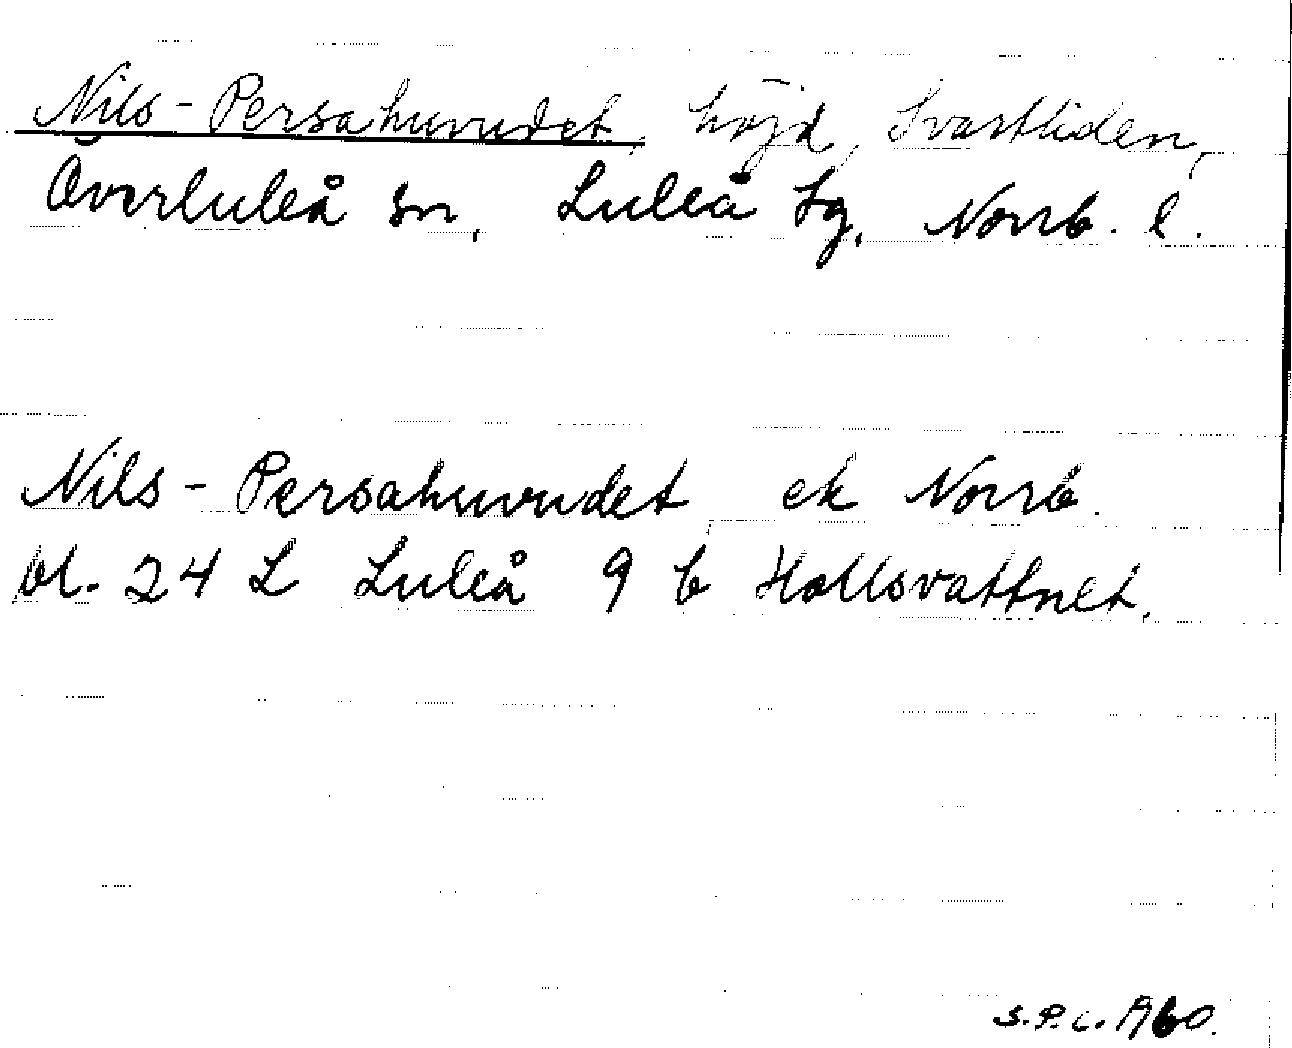 Nils-Persahuvudet, höjd, Svartliden,
Överluleå sn, Luleå tg, Norrb. l.
Nils-Persahuvudet ek Norrb.
bl. 24 L Luleå 9 b Hallsvattnet.
S.P.L. A60.